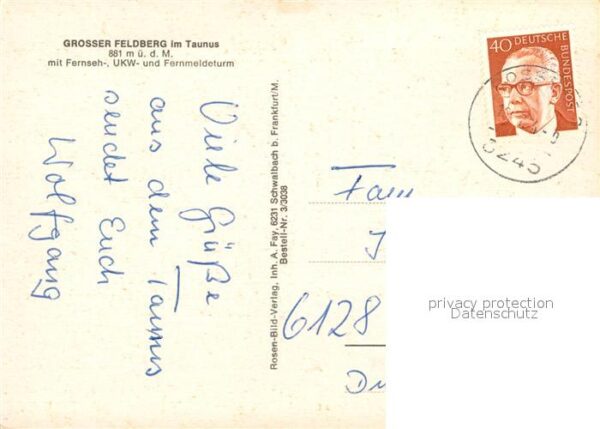 GROSSER FELDBERG im Taunus
881 m ü. d. M.
mit Fernseh-, UKW- und Fernmeldeturm
Viele Grüße
aus dem Taunus
sendet Euch
Wolfgang
Rosen-Bild-Verlag, Inh. A. Fay, 6231 Schwalbach b. Frankfurt/M.
Bestell-Nr. 3/3038
40 DEUTSCHE
BUNDESPOST
Fam
6128
privacy protection
Datenschutz